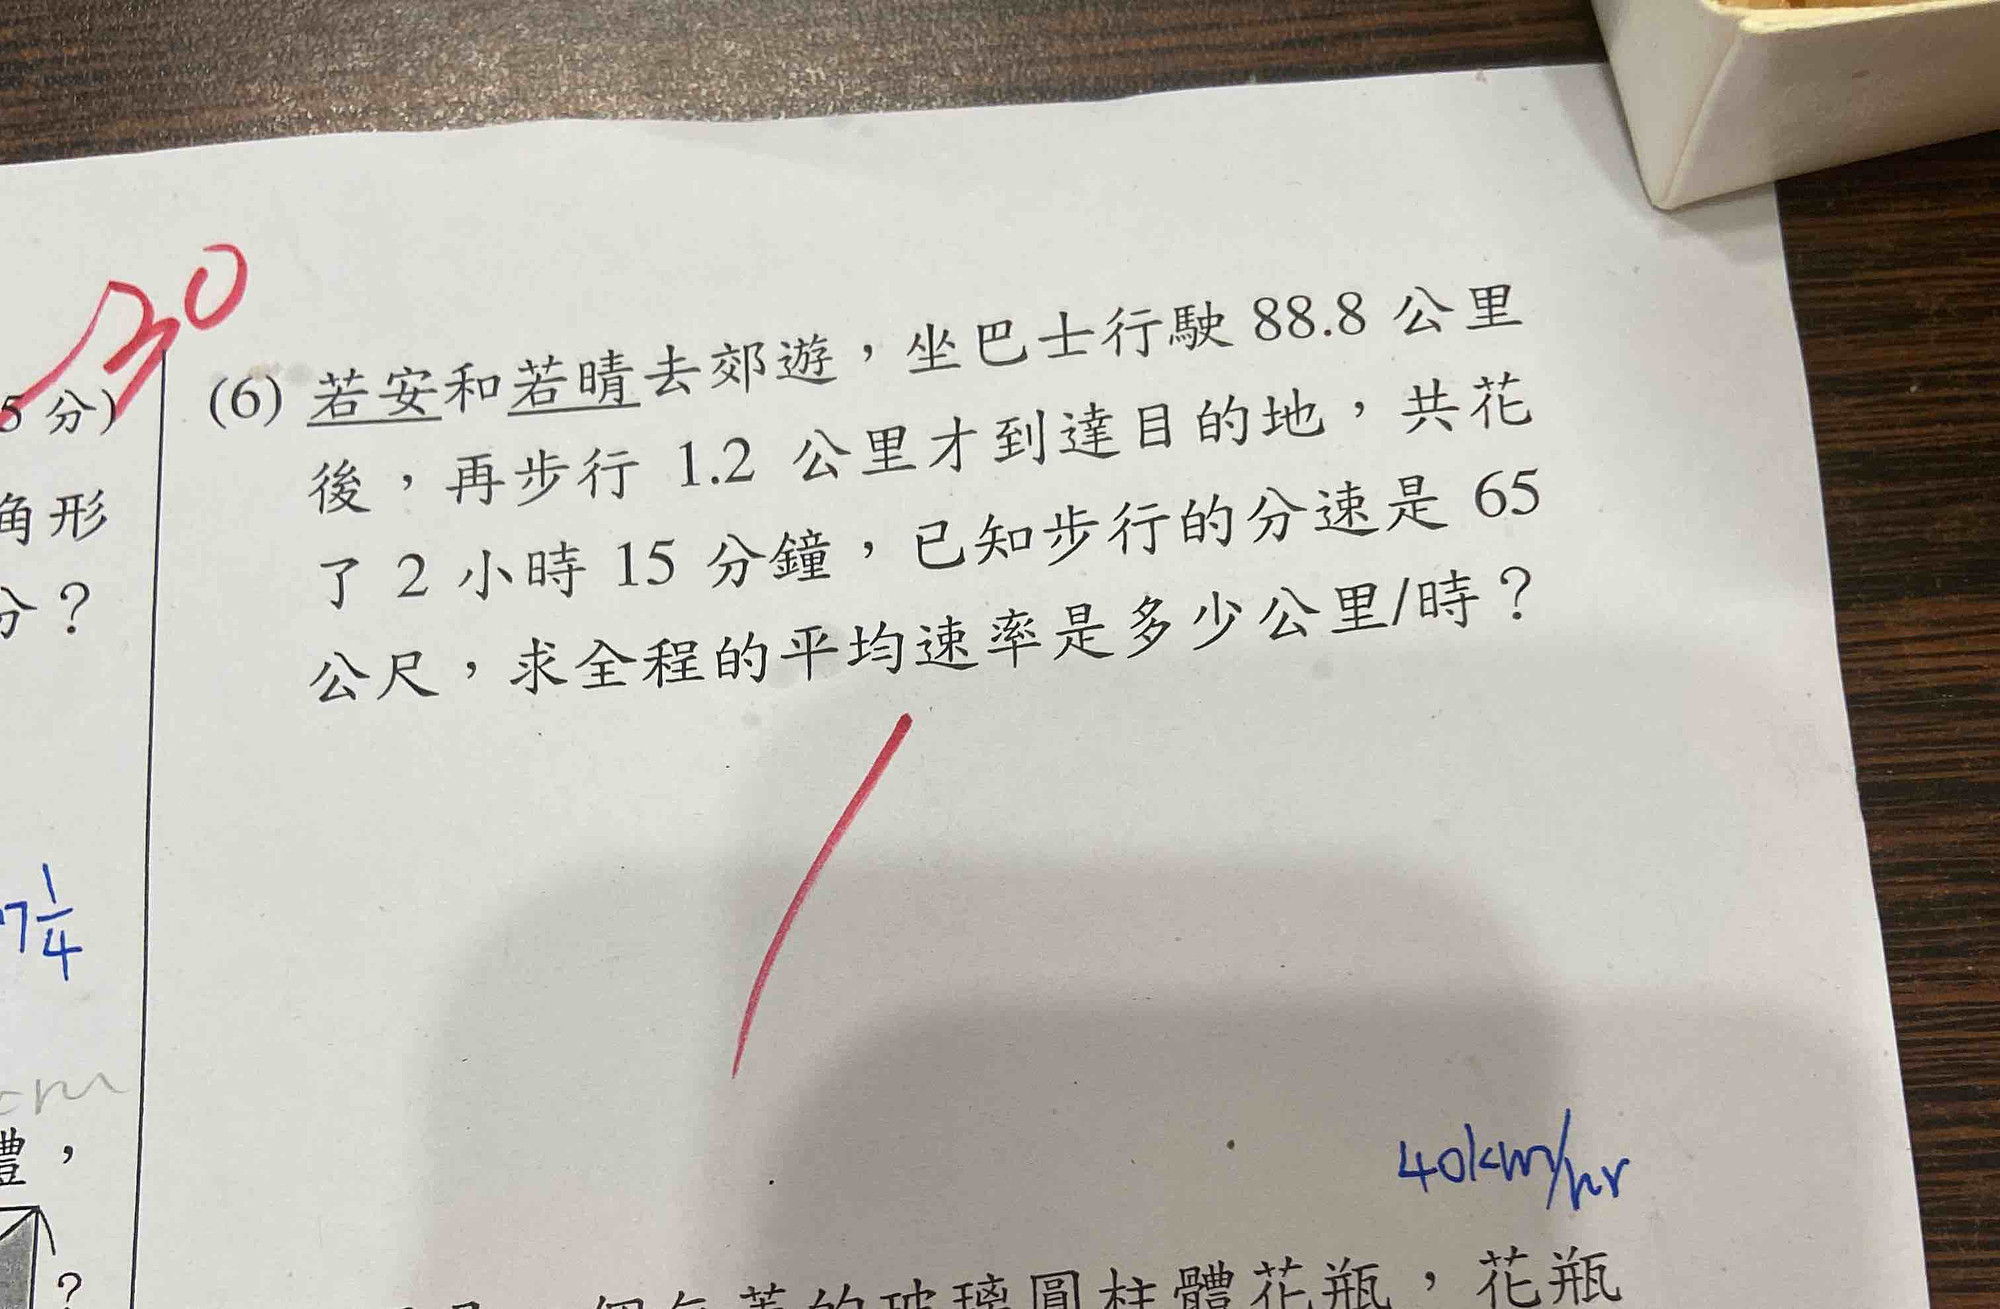 30
5分)
角形
分？
7 1/4
cm
體，
？
(6) 若安和若晴去郊遊，坐巴士行駛 88.8 公里
後，再步行 1.2 公里才到達目的地，共花
了 2 小時 15 分鐘，已知步行的分速是 65
公尺，求全程的平均速率是多少公里/時？
40km/hr
個
的玻璃圓柱體花瓶，花瓶